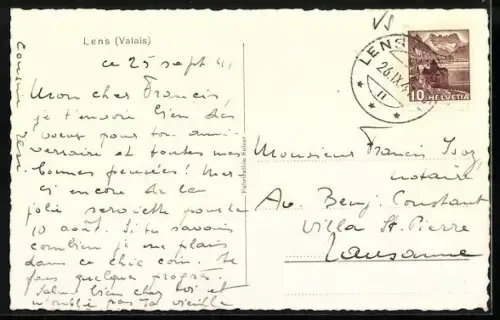 Lens (Valais)
ce 25 sept 41
Mon cher Francis,
je t'envoie bien des
voeux pour ton anni-
versaire et toutes mes
bonnes pensées! Mer-
ci encore de la
jolie serviette pour le
10 août. Si tu savais
combien je me plais
dans ce chic coin. Je
fais quelques progrès.
Salue bien chez toi et
n'oublie pas ta vieille
cousine
Fabrication Suisse
LENS
26.IX.4
10 HELVETIA
Monsieur Francis
notaire
Av. Benj. Constant
Villa St. Pierre
Lausanne